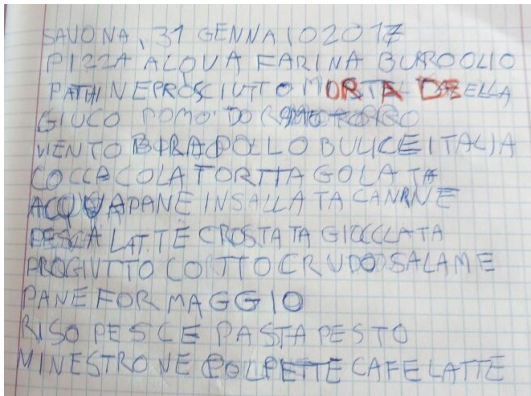 SAVONA, 31 GENNAIO 2017
PIZZA ACQUA FARINA BURROOLIO
PATAINEPROSCIUTTO MORTADEELLA
GIUCO POMODORO
VENTO BIRAPOLLO BULICE ITALIA
COCCACOLA TORTTA GOLATA
ACQUAPANE INSALLATA CANRNE
PESCA LATTE CROSTATA GIOCCLATA
PROGIUTTO COTTTO CRUDO SALAME
PANEFORMAGGIO
RISO PESCE PASTA PESTO
MINESTRONE POLPETTE CAFE LATTE